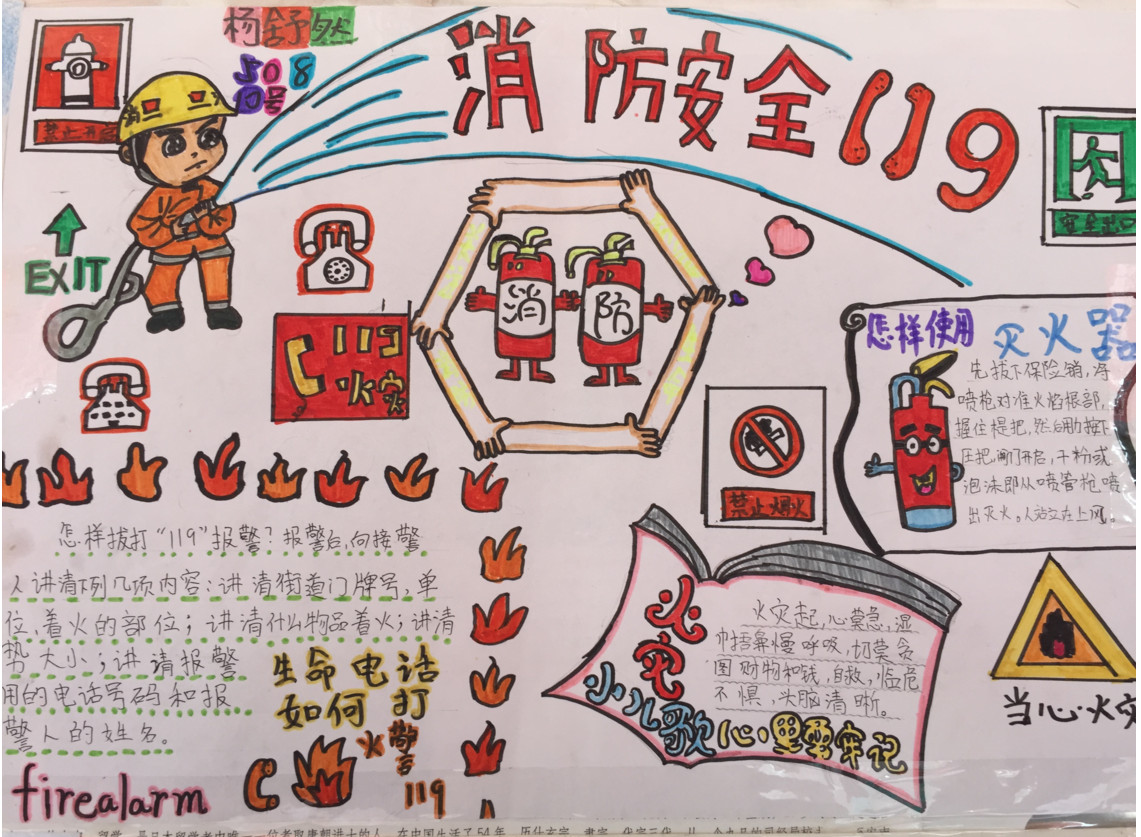 杨舒然
508
10号
消防安全119
禁止开
安全出口
EXIT
119
火灾
消 防
怎样使用 灭火器
先拔下保险销,将
喷枪对准火焰根部,
握住提把,然后用力按下
压把,阀门开启,干粉或
泡沫即从喷管枪喷
出灭火。人站立在上风。
禁止烟火
怎样拔打“119”报警?报警后,向接警
人讲清下列几项内容:讲清街道门牌号,单
位,着火的部位;讲清什么物品着火;讲清
势大小;讲请报警
用的电话号码和报
警人的姓名。
生命电话
如何打
火警
119
firealarm
火灾
小儿歌
火灾起,心莫急,湿
巾捂鼻慢呼吸,切莫贪
图财物和钱,自救,临危
不惧,头脑清晰。
心里要牢记
当心火灾